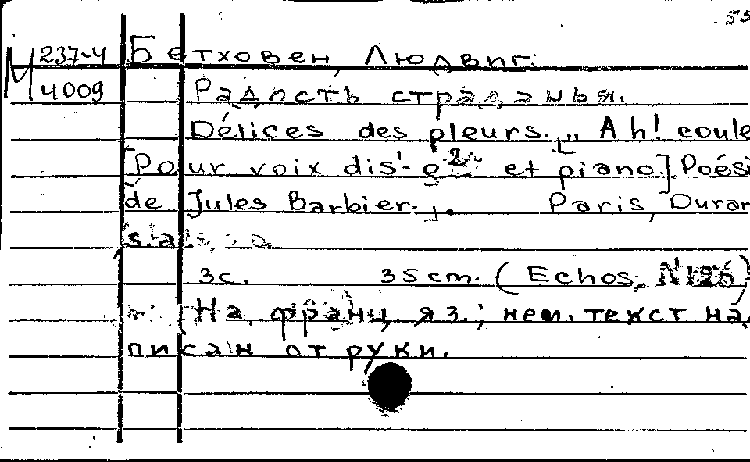 55
М 237-4 Бетховен, Людвиг.
4009 Радость страданья.
Délices des pleurs. „Ah! coule
[Pour voix dis'- et piano] Poési
de Jules Barbier. Paris, Duran
3с. 35 cm. (Echos,
На франц. яз.; нем. текст на,
писан от руки.